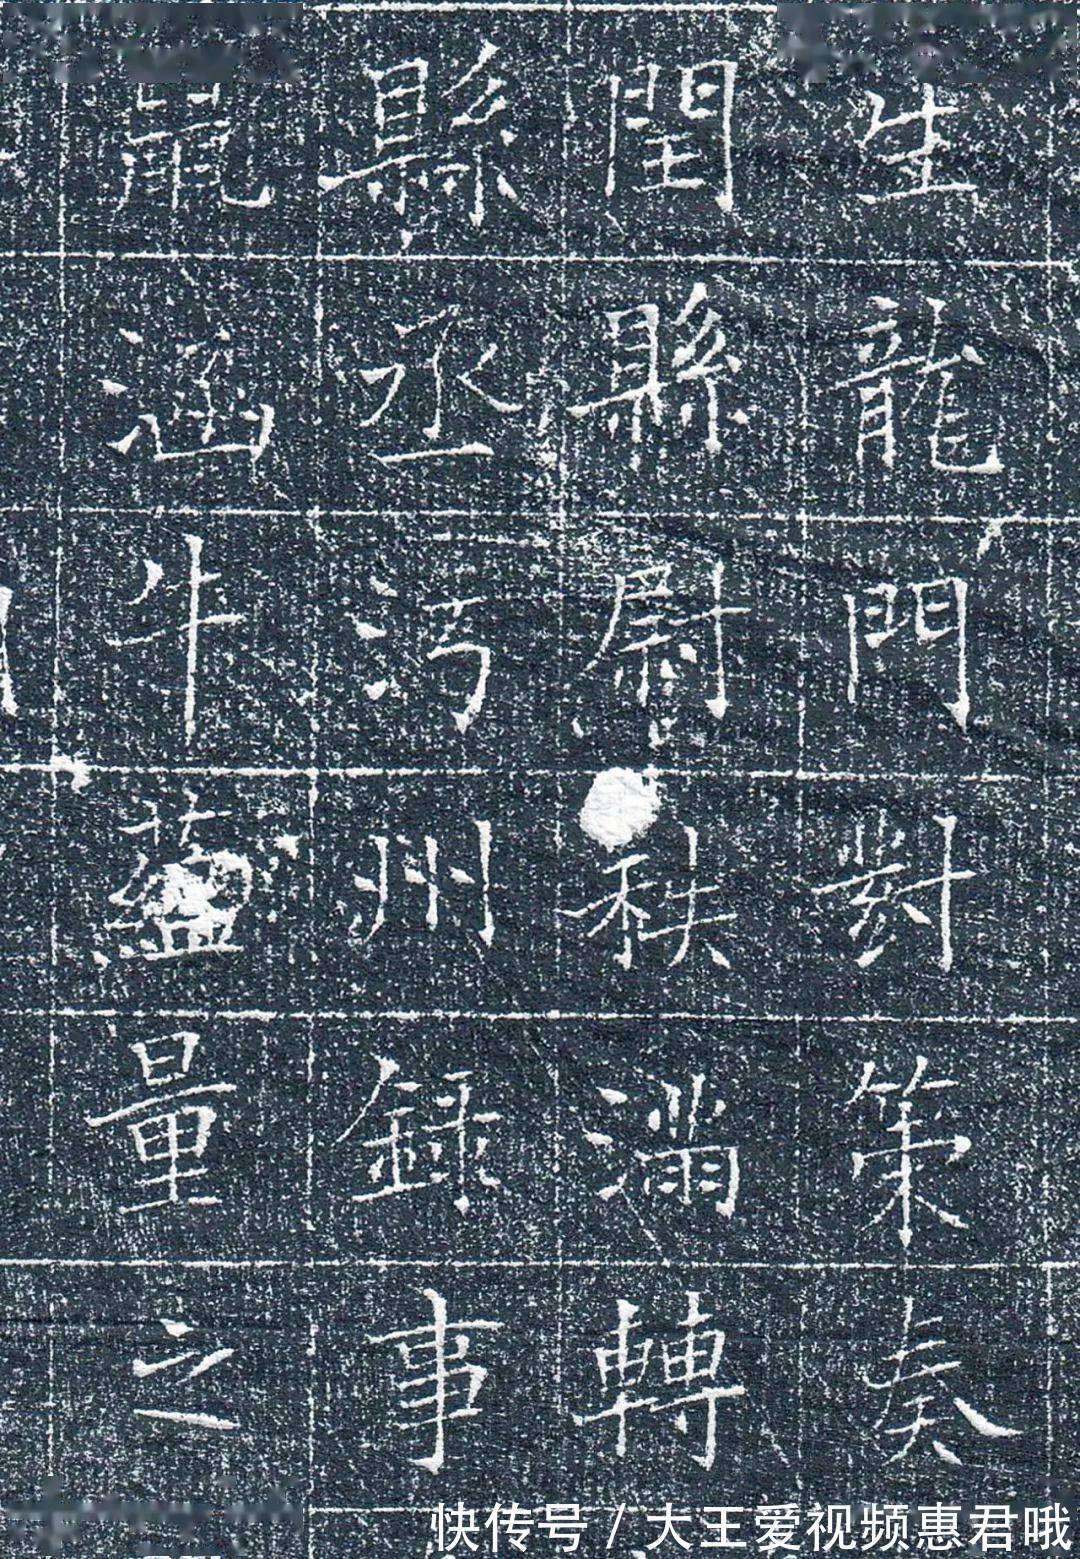 生龍門對策奏
閏縣尉秩滿轉
縣丞沔州録事
涵牛量之
快传号 / 大王爱视频惠君哦